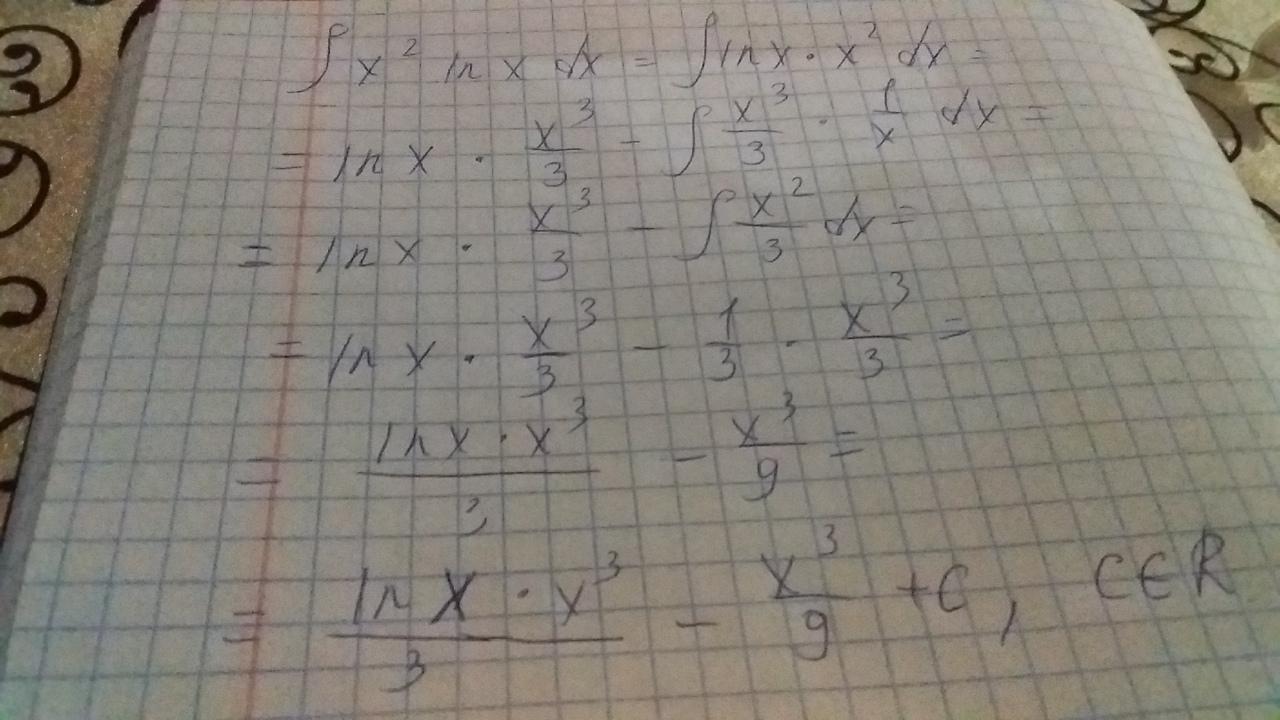 ∫ x² ln x dx = ∫ ln x · x² dx =
= ln x · x³/3 - ∫ x³/3 · 1/x dx =
= ln x · x³/3 - ∫ x²/3 dx =
= ln x · x³/3 - 1/3 · x³/3 =
= (ln x · x³)/3 - x³/9 =
= (ln x · x³)/3 - x³/9 + C, C ∈ R